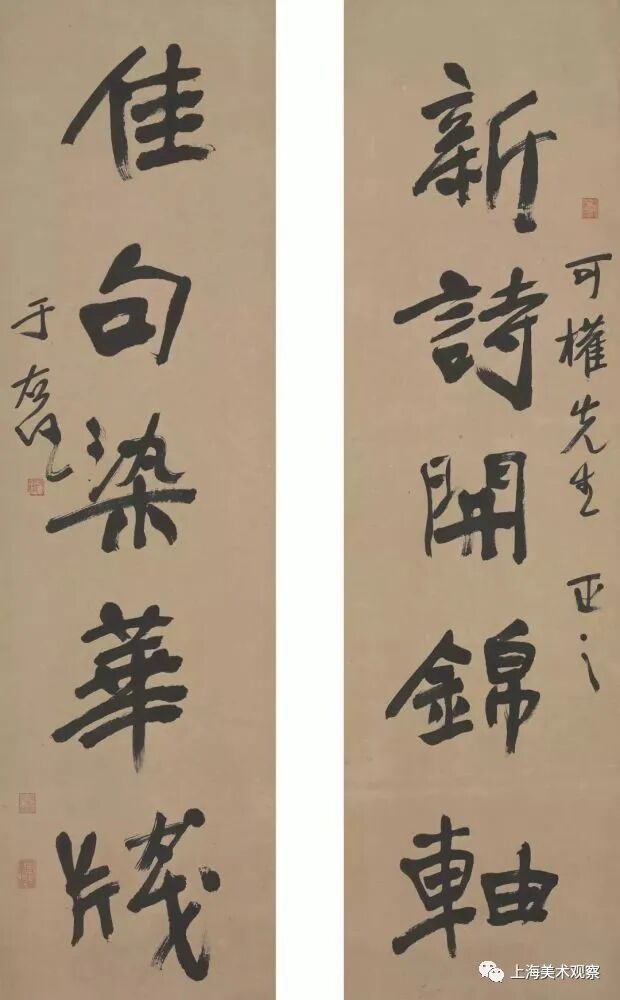 新詩開錦軸
可權先生 正之
佳句染華牋
于右任
上海美术观察